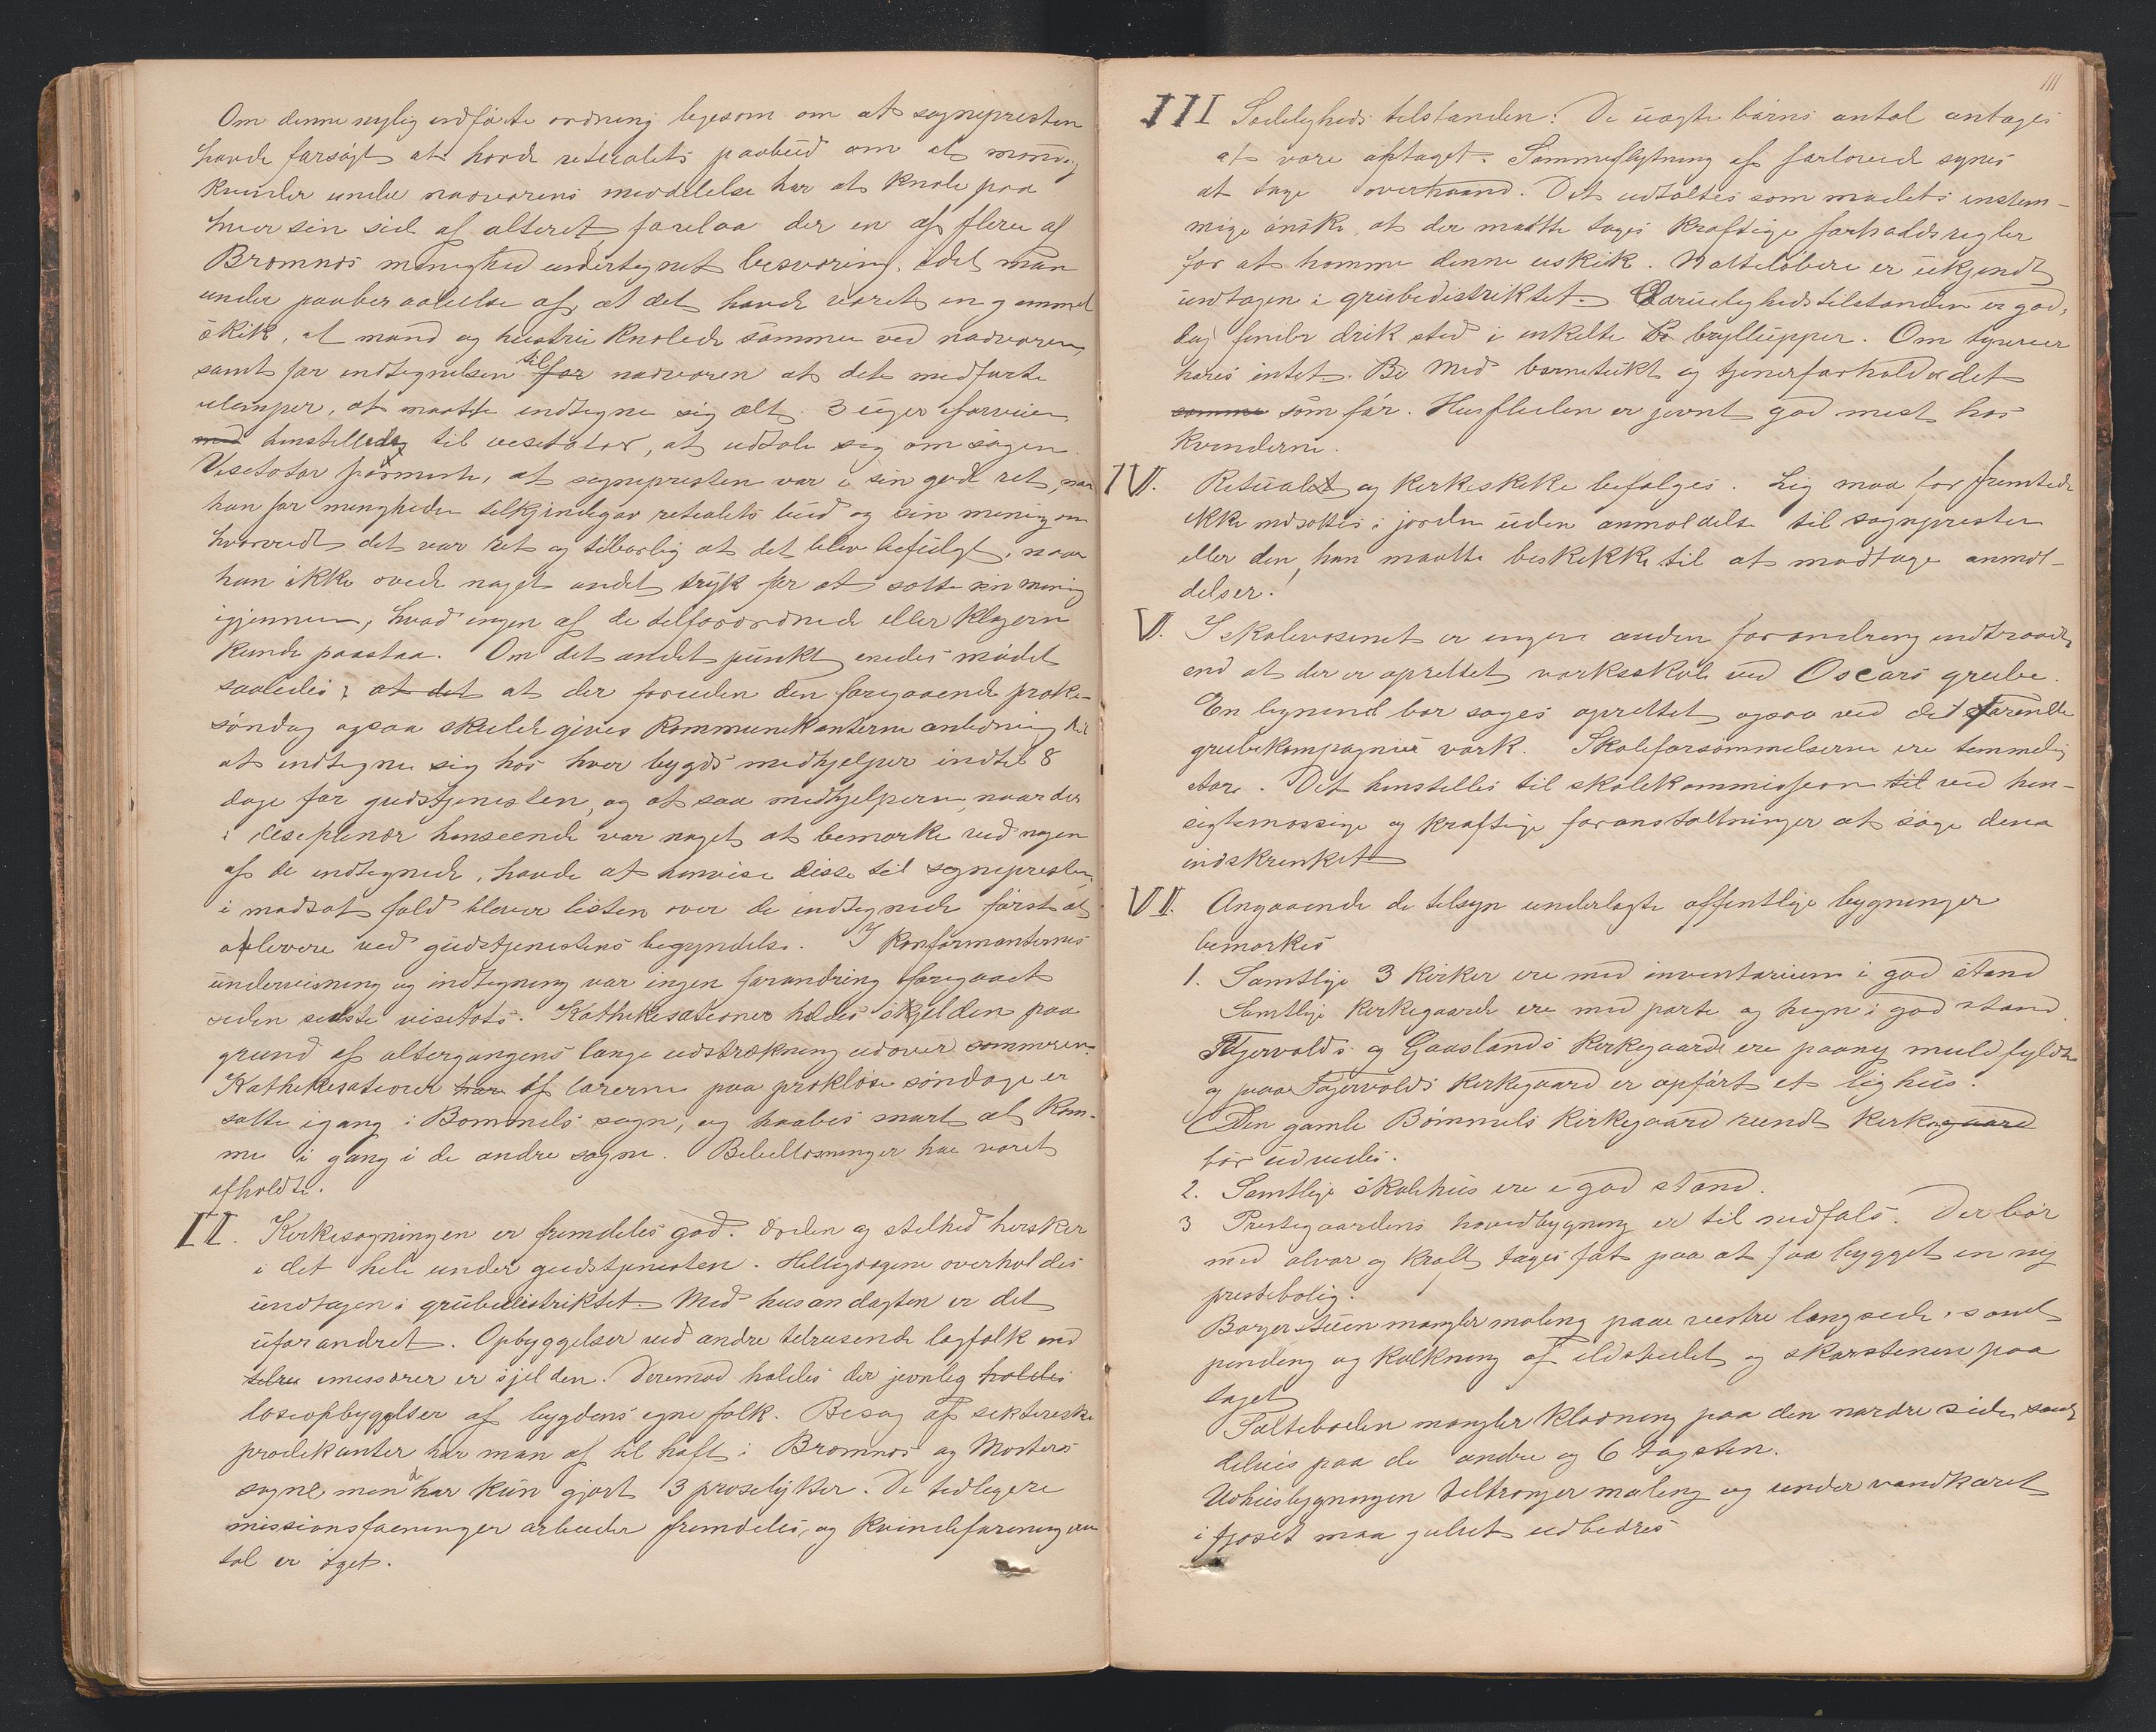 Om denne nylig indførte ordning ligesom om at sognepresten
havde forsøgt at havde ritualets paabud om at mænd og
kvinder under nadverens meddelelse har at knæle paa
hver sin side af alteret forelaa der en af flere af
Bremnes menighed undertegnet besværing, idet man
under paaberaabelse af, at det havde været en gammel
skik, at mand og hustru knælede sammen ved nadveren,
samt for indtegnelsen til for nadveren at det medførte
ulemper, at maatte indtegne sig alt 3 uger iforveien
med henstilledes til visitator, at udtale sig om sagen.
Visitator formente, at sognepresten var i sin gode ret, naar
han for menigheden tilkjendegav ritualets bud og sin mening om
hvorvidt det var ret og tilbørlig at det blev befulgt, naar
han ikke øvede noget andet tryk for at sætte sin mening
igjennem, hvad ingen af de tilforordnede eller klagerne
kunde paastaa. Om det andet punkt enedes mødet
saaledes; at det at der foruden den foregaaende præke-
søndag ogsaa skulde gives kommunikanterne anledning til
at indtegne sig hos hver bygds medhjelper indtil 8
dage før gudstjenesten, og at saa medhjelperne, naar der
i disiplinær henseende var noget at bemærke ved nogen
af de indtegnede, havde at henvise disse til sognepresten,
i modsat fald bliver listen over de indtegnede først at
aflevere ved gudstjenestens begyndelse. I konfirmanternes
undervisning og indtegning var ingen forandring foregaaet
siden sidste visitats. Kathekisationer holdes sjelden paa
grund af altergangens lange udstrækning udover sommeren.
Kathekisationer har af lærerne paa prækløse søndage er
satte igang i Bømmels sogn, og haabes snart at kom-
me i gang i de andre sogne. Bibellæsninger har været
afholdte.
II. Kirkesøgningen er fremdeles god. Orden og stilhed hersker
i det hele under gudstjenesten. Helligdagene overholdes
undtagen i grubedistriktet. Med husandagten er det
uforandret. Opbyggelser ved andre tilreisende lægfolk end
tilrei emissærer er sjelden. Derimod holdes der jevnlig holdes
læseopbyggelser af bygdens egne folk. Besøg af sekteriske
prædikanter har man af til haft i Bremnes og Mosters
sogne men d har kun gjort 3 proselyter. De tidligere
missionsforeninger arbeider fremdeles, og kvindeforeningernes
tal er øget.
111
III Sædelighedstilstanden: De uægte børns antal antages
at være aftaget. Sammenflytning af forlovede synes
at tage overhaand. Det udtaltes som mødets enstem-
mige ønske, at der maatte tages kraftige forholdsregler
for at hemme denne uskik. Natteløberi er ukjendt
undtagen i grubedistriktet. Ædruelighedstilstanden er god,
dog finder drik sted i enkelte Br bryllupper. Om tyverier
høres intet. Be Med børnetukt og tjenerforhold er det
samme som før. Husfliden er jevnt god mest hos
kvinderne.
IV. Ritualet og kirkeskikke befølges. Lig maa for fremtiden
ikke nedsættes i jorden uden anmeldelse til sognepresten
eller den, han maatte beskikke til at modtage anmel-
delser.
V. I skolevæsenet er ingen anden forandring indtraadt,
end at der er oprettet værksskole ved Oscars grube.
En lignende bør søges oprettet ogsaa ved det
grubekompagnies værk. Skoleforsømmelserne ere temmelig
store. Det henstilles til skolekommissjon til ved hen-
sigtsmæssige og kraftige foranstaltninger at søge disse
indskrenket
VI. Angaaende de tilsyn underlagte offentlige bygninger
bemærkes
1. Samtlige 3 kirker ere med inventarium i god stand
Samtlige kirkegaarde ere med porte og hegn i god stand.
og Gaaslands kirkegaarde ere paany muldfyldte
og paa kirkegaard er opført et lighus.
Den gamle Bømmels kirkegaard rundt kirkegaard
bør udvides.
2. Samtlige skolehus ere i god stand.
3 Prestegaardens hovedbygning er til nedfals. Der bør
med alvor og kraft tages fat paa at faa bygget en ny
prestebolig.
Borgerstuen mangler maling paa vestre langside, samt
pudsing og kalkning af ildstedet og skorstenen paa
taget
mangler klædning paa den nordre side, samt
delvis paa de andre og 6 tagsten.
Udhusbygningen tiltrænger maling og under vandkaret
i fjøset maa gulvet udbedres